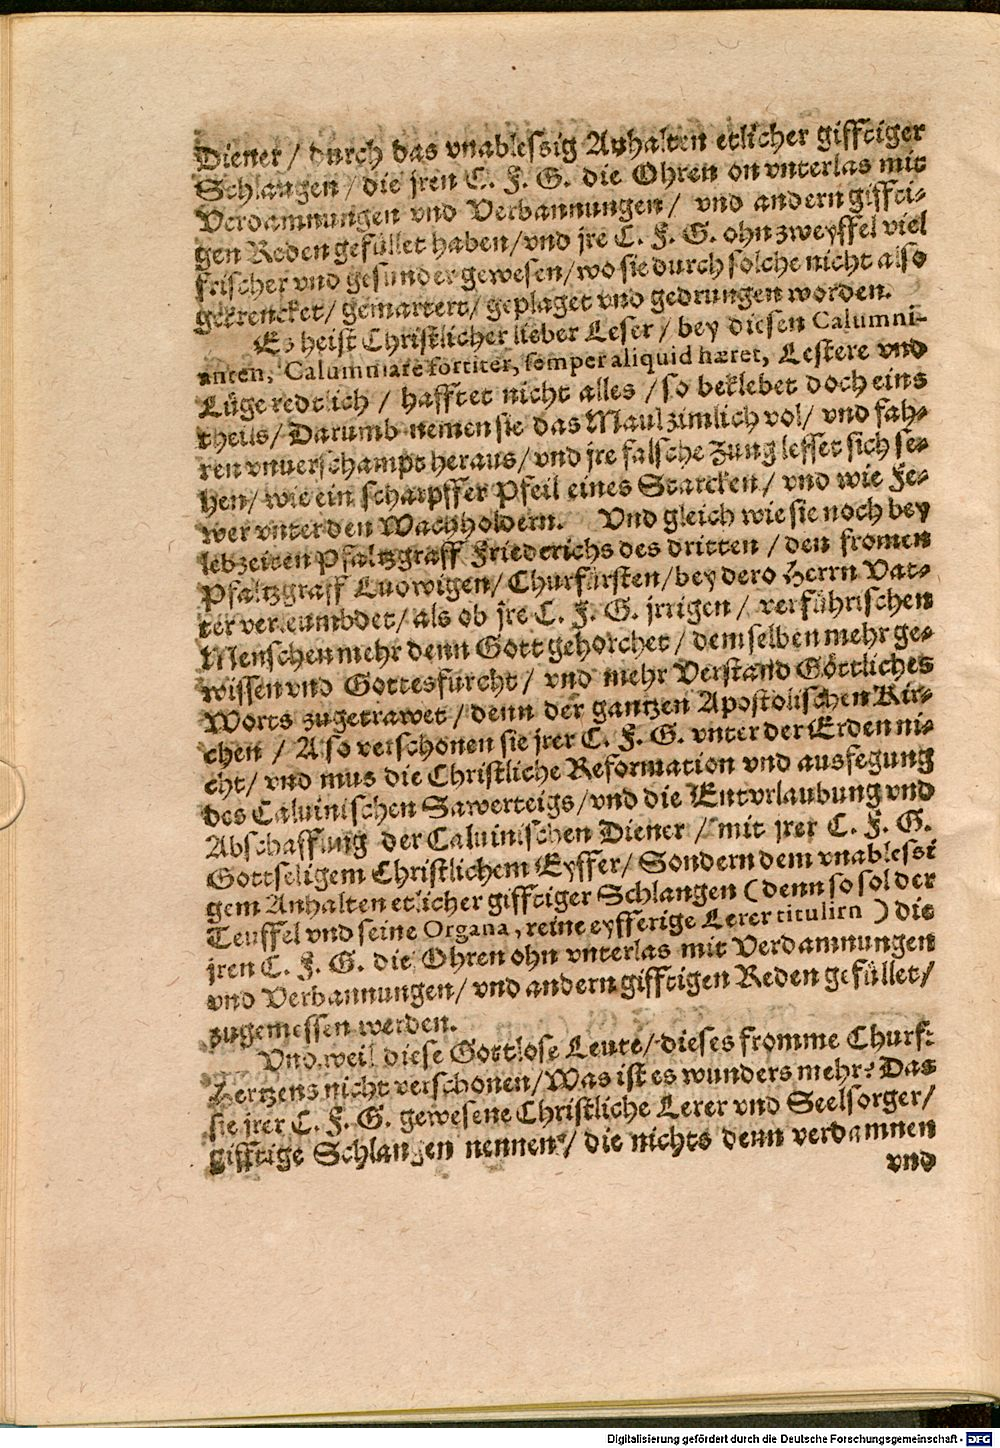 Diener / durch das vnablessig Anhalten etlicher gifftiger
Schlangen / die jren C. F. G. die Ohren on vnterlas mit
Verdamnungen vnd Verbannungen / vnd andern giffti-
gen Reden gefüllet haben / vnd jre C. F. G. ohn zweyffel viel
frischer vnd gesunder gewesen / wo sie durch solche nicht also
gekrencket / gemartert / geplaget vnd gedrungen worden.
Es heist Christlicher lieber Leser / bey diesen Calumni-
anten, Calumniare fortiter, semper aliquid hæret, Lestere vnd
Lüge redtlich / hafftet nicht alles / so beklebet doch eins
theils / Darumb nemen sie das Maul zimlich vol / vnd fah-
ren vnuerschampt heraus / vnd jre falsche Zung lesset sich se-
hen / wie ein scharpffer Pfeil eines Starcken / vnd wie Fe-
wer vnter den Wachholdern. Vnd gleich wie sie noch bey
lebzeiten Pfaltzgraff Friederichs des dritten / den fromen
Pfaltzgraff Ludwigen / Churfürsten / bey dero Herrn Vat-
ter verleumbdet / als ob jre C. F. G. jrrigen / verführischen
Menschen mehr denn Gott gehorchet / demselben mehr ge-
wissen vnd Gottesfurcht / vnd mehr Verstand Göttliches
Worts zugetrawet / denn der gantzen Apostolischen Kir-
chen / Also verschonen sie jrer C. F. G. vnter der Erden ni-
cht / vnd mus die Christliche Reformation vnd ausfegung
des Caluinischen Sawerteigs / vnd die Enturlaubung vnd
Abschaffung der Caluinischen Diener / mit jrer C. F. G.
Gottseligem Christlichem Eyffer / Sondern dem vnablessi
gem Anhalten etlicher gifftiger Schlangen (denn so sol der
Teuffel vnd seine Organa, reine eyfferige Lerer titulirn) die
jren C. F. G. die Ohren ohn vnterlas mit Verdamnungen
vnd Verbannungen / vnd andern gifftigen Reden gefüllet /
zugemessen werden.
Vnd weil diese Gottlose Leute / dieses fromme Churf:
Hertzens nicht verschonen / Was ist es wunders mehr? Das
sie jrer C. F. G. gewesene Christliche Lerer vnd Seelsorger /
gifftige Schlangen nennen / die nichts denn verdamnen
vnd
Digitalisierung gefördert durch die Deutsche Forschungsgemeinschaft - DFG